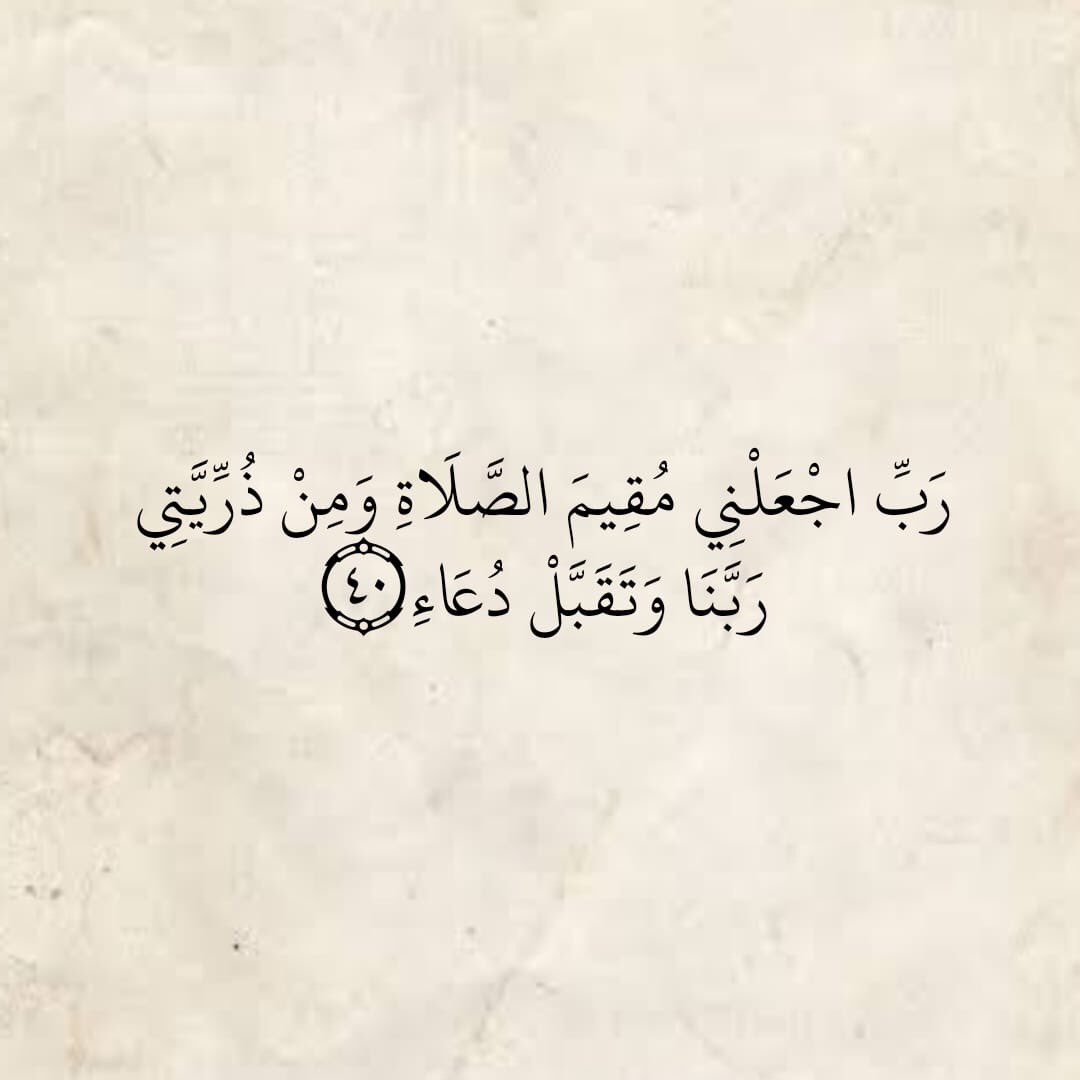 رَبِّ اجْعَلْنِي مُقِيمَ الصَّلَاةِ وَمِنْ ذُرِّيَّتِي
رَبَّنَا وَتَقَبَّلْ دُعَاءِ ۝٤٠